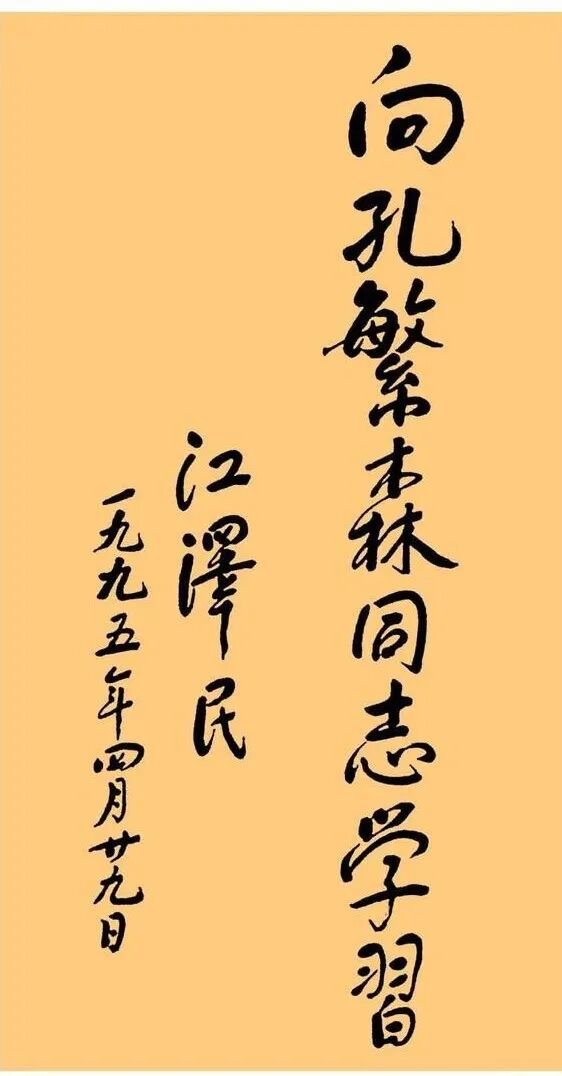 向孔繁森同志学習
江澤民
一九九五年四月廿九日